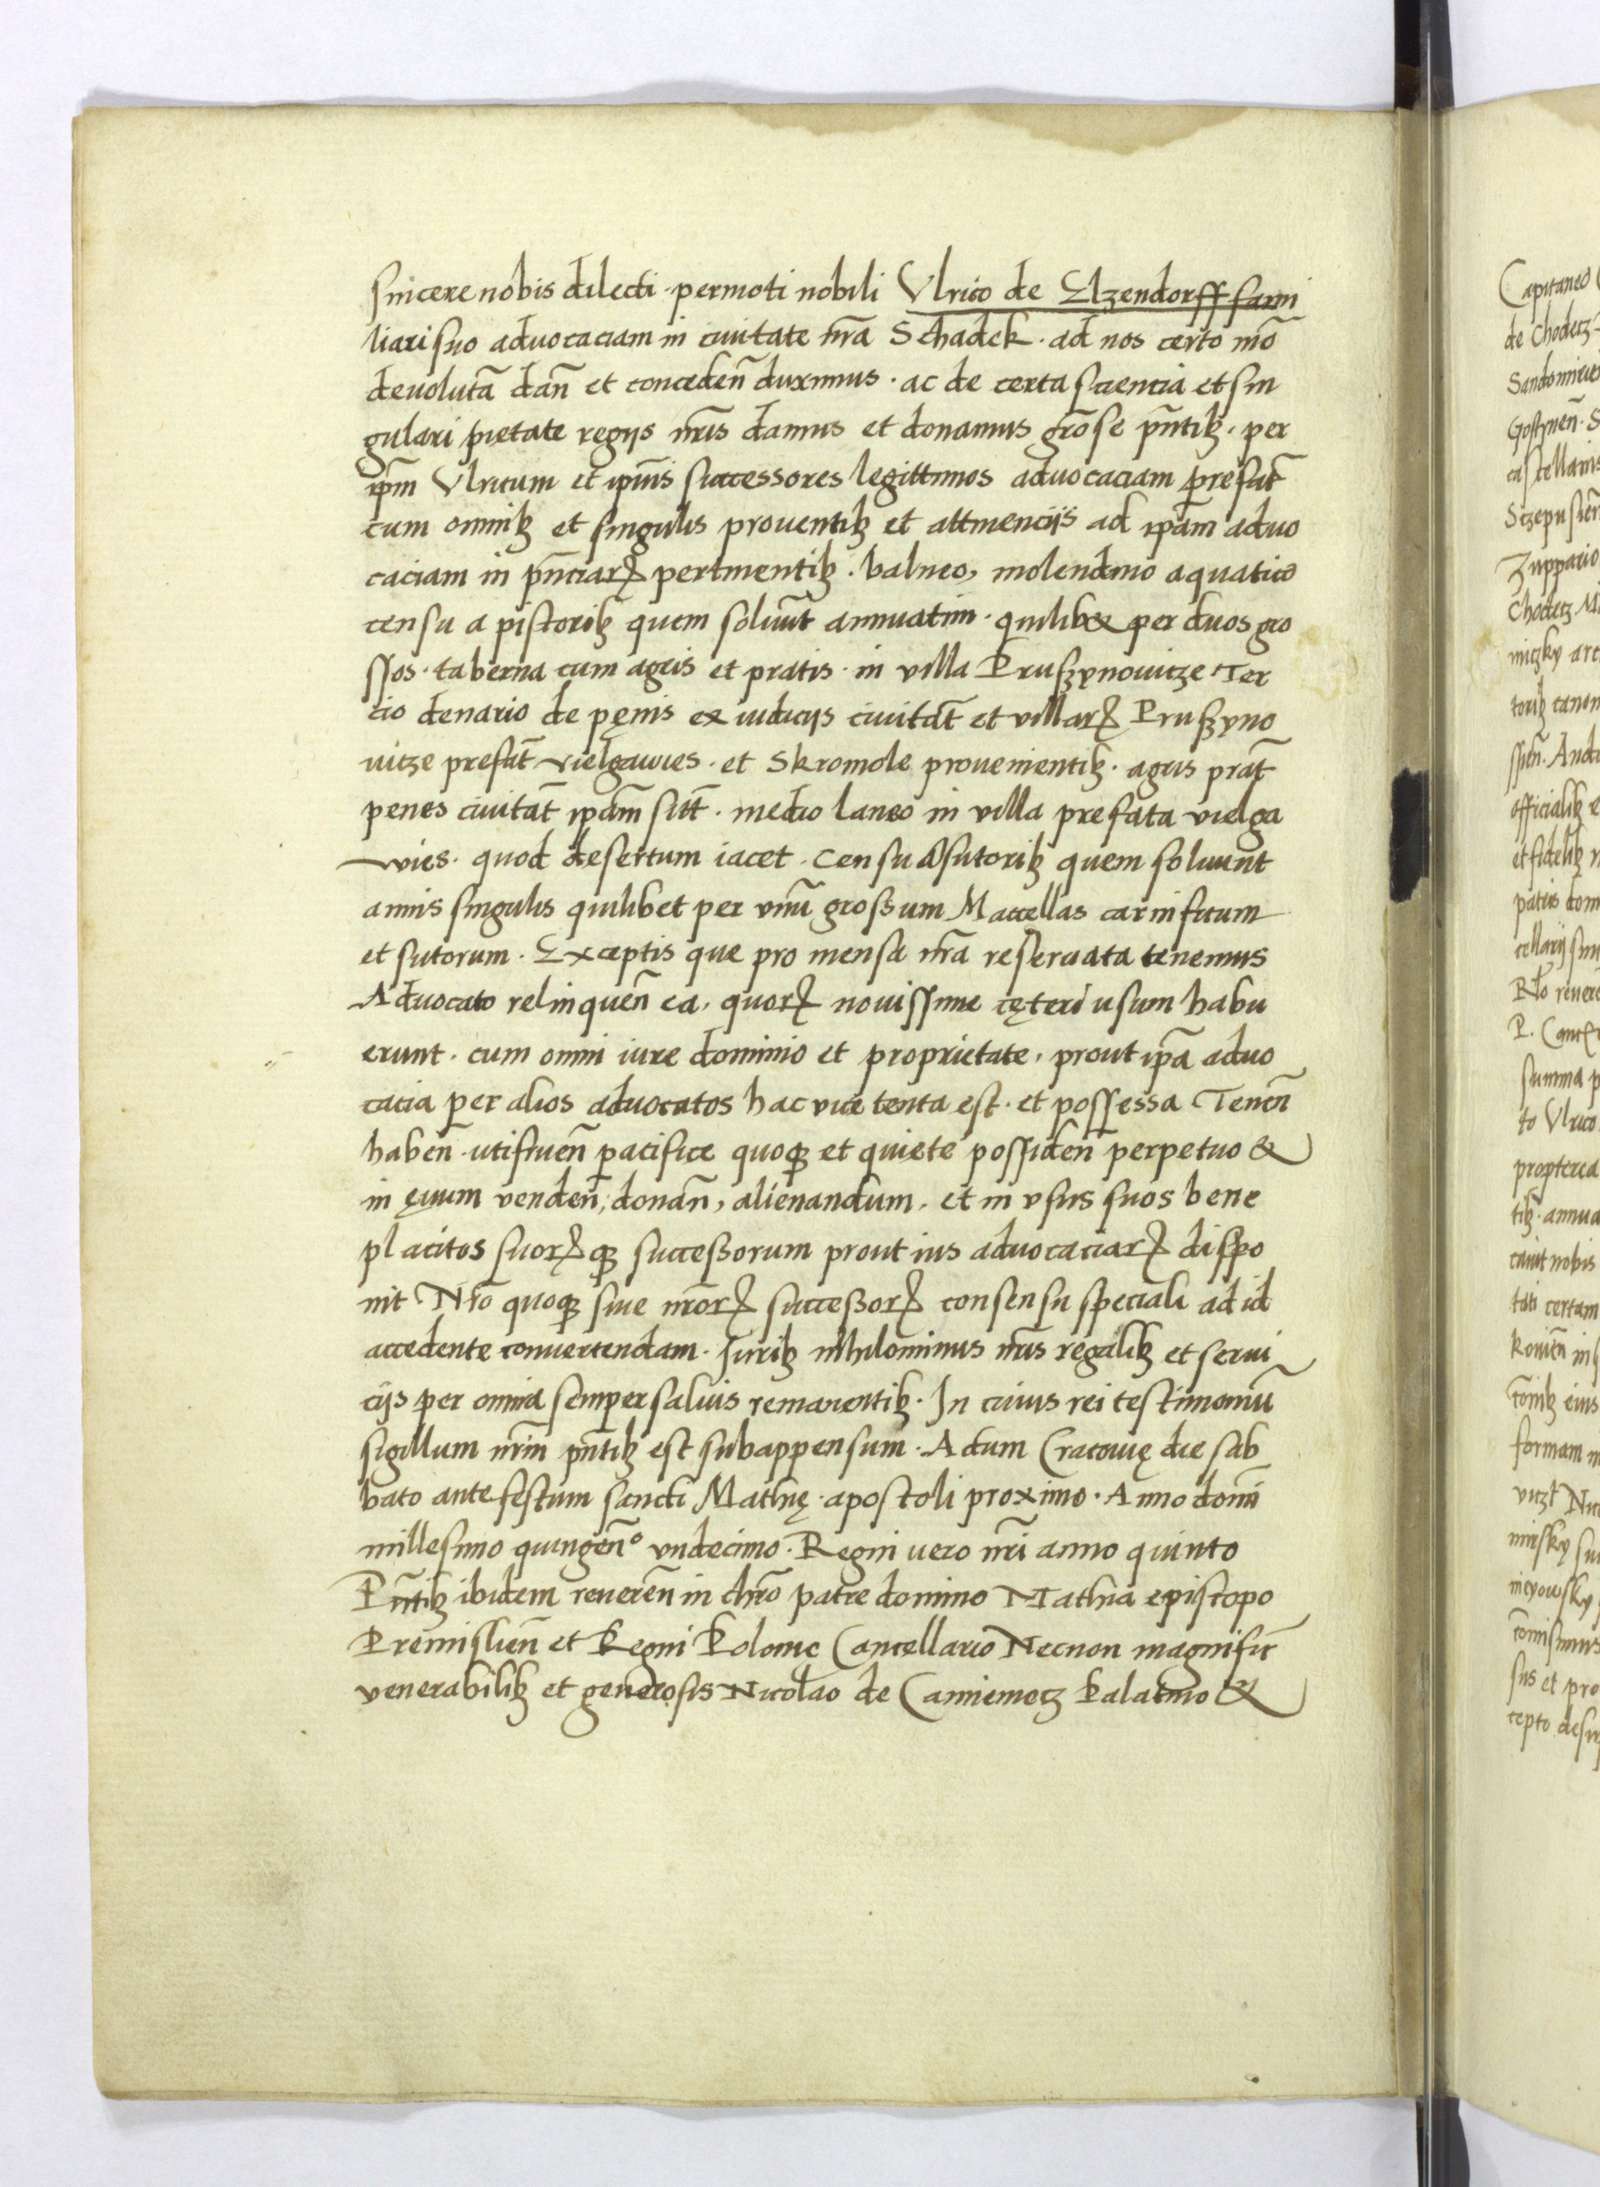 sincere nobis dilecti · permoti nobili Ulrico de Elzendorff fami
liari suo advocaciam in civitate nr̃a Schadek · ad nos certo mõ
devolutã dañ et concedeñ duximus · ac de certa sciencia et sin
gulari pietate regijs nr̃is damus et donamus grõse pñtibꝫ · per
ip̃m Ulricum et ip̃ius successores legittimos advocaciam prefat̃
cum omnibꝫ et singulis proventibꝫ et attinencijs ad ip̃am advo
caciam in pñciarꝝ pertinentibꝫ · balneo, molendino aquatico
censu a pistoribꝫ quem solvũt annuatim · quilibꝫ per duos gro
ssos · taberna cum agris et pratis · in villa Pruszynovitze Ter
cio denario de pęnis ex iudicijs civitat̃ et villarꝝ Pruszyno
vitze prefat̃ vielgawies · et Skromole provenientibꝫ · agris prat̃
penes civitat̃ ip̃am sit̃ · medio laneo in villa prefata vielga
wies · quod desertum iacet · Censu a sutoribꝫ quem solvunt
annis singulis quilibet per unũ grossum Maccellas carnificum
et sutorum · Exceptis que pro mensa nr̃a reservata tenemus
Advocato relinqueñ ea, quorꝝ novissime cęteri usum habu
erunt · cum omni iure dominio et proprietate, prout ip̃a advo
cacia per alios advocatos hac vice tenta est · et possessa Teneñ
habeñ · utifrueñ pacifice quoqꝫ et quiete possideñ perpetuo &
in ęvum vendeñ, donañ, alienandum, et in usus suos bene
placitos suorꝝqꝫ successorum prout ius advocaciarꝝ dispo
nit Nr̃o quoqꝫ sive nr̃orꝝ successorꝝ consensu speciali ad id
accedente convertendam · Juribꝫ nihilominus nr̃is regalibꝫ et servi
cijs per omnia semper salvis remanentibꝫ · In cuius rei testimoniũ
sigillum nr̃m pñtibꝫ est subappensum · Actum Cracovię die sab
bato ante festum sancti Mathię · apostoli proximo · Anno domĩ
millesimo quingeñ° undecimo · Regni vero nr̃i anno quinto
Pñtibꝫ ibidem revereñ in chr̃o patre domino Mathia episcopo
Premislieñ et Regni Polonie Cancellario Necnon magnific̃
venerabilibꝫ et generosis Nicolao de Camiemetz Palatino &
Capitaneo
de Chodetz
Sandomirien
Gostyneñ · S
castellanis
Sczepusieñ
Zuppario
Chodetz Mi
miczky arc
toribꝫ canon
ssieñ · And
officialibꝫ e
et fidelibꝫ n
patris dom
cellarij
Rto revere
summa p
to Ulrico
propterea
tibꝫ · annua
cavit nobis
tati certam
formam
minsky su
sus et pro
cepto